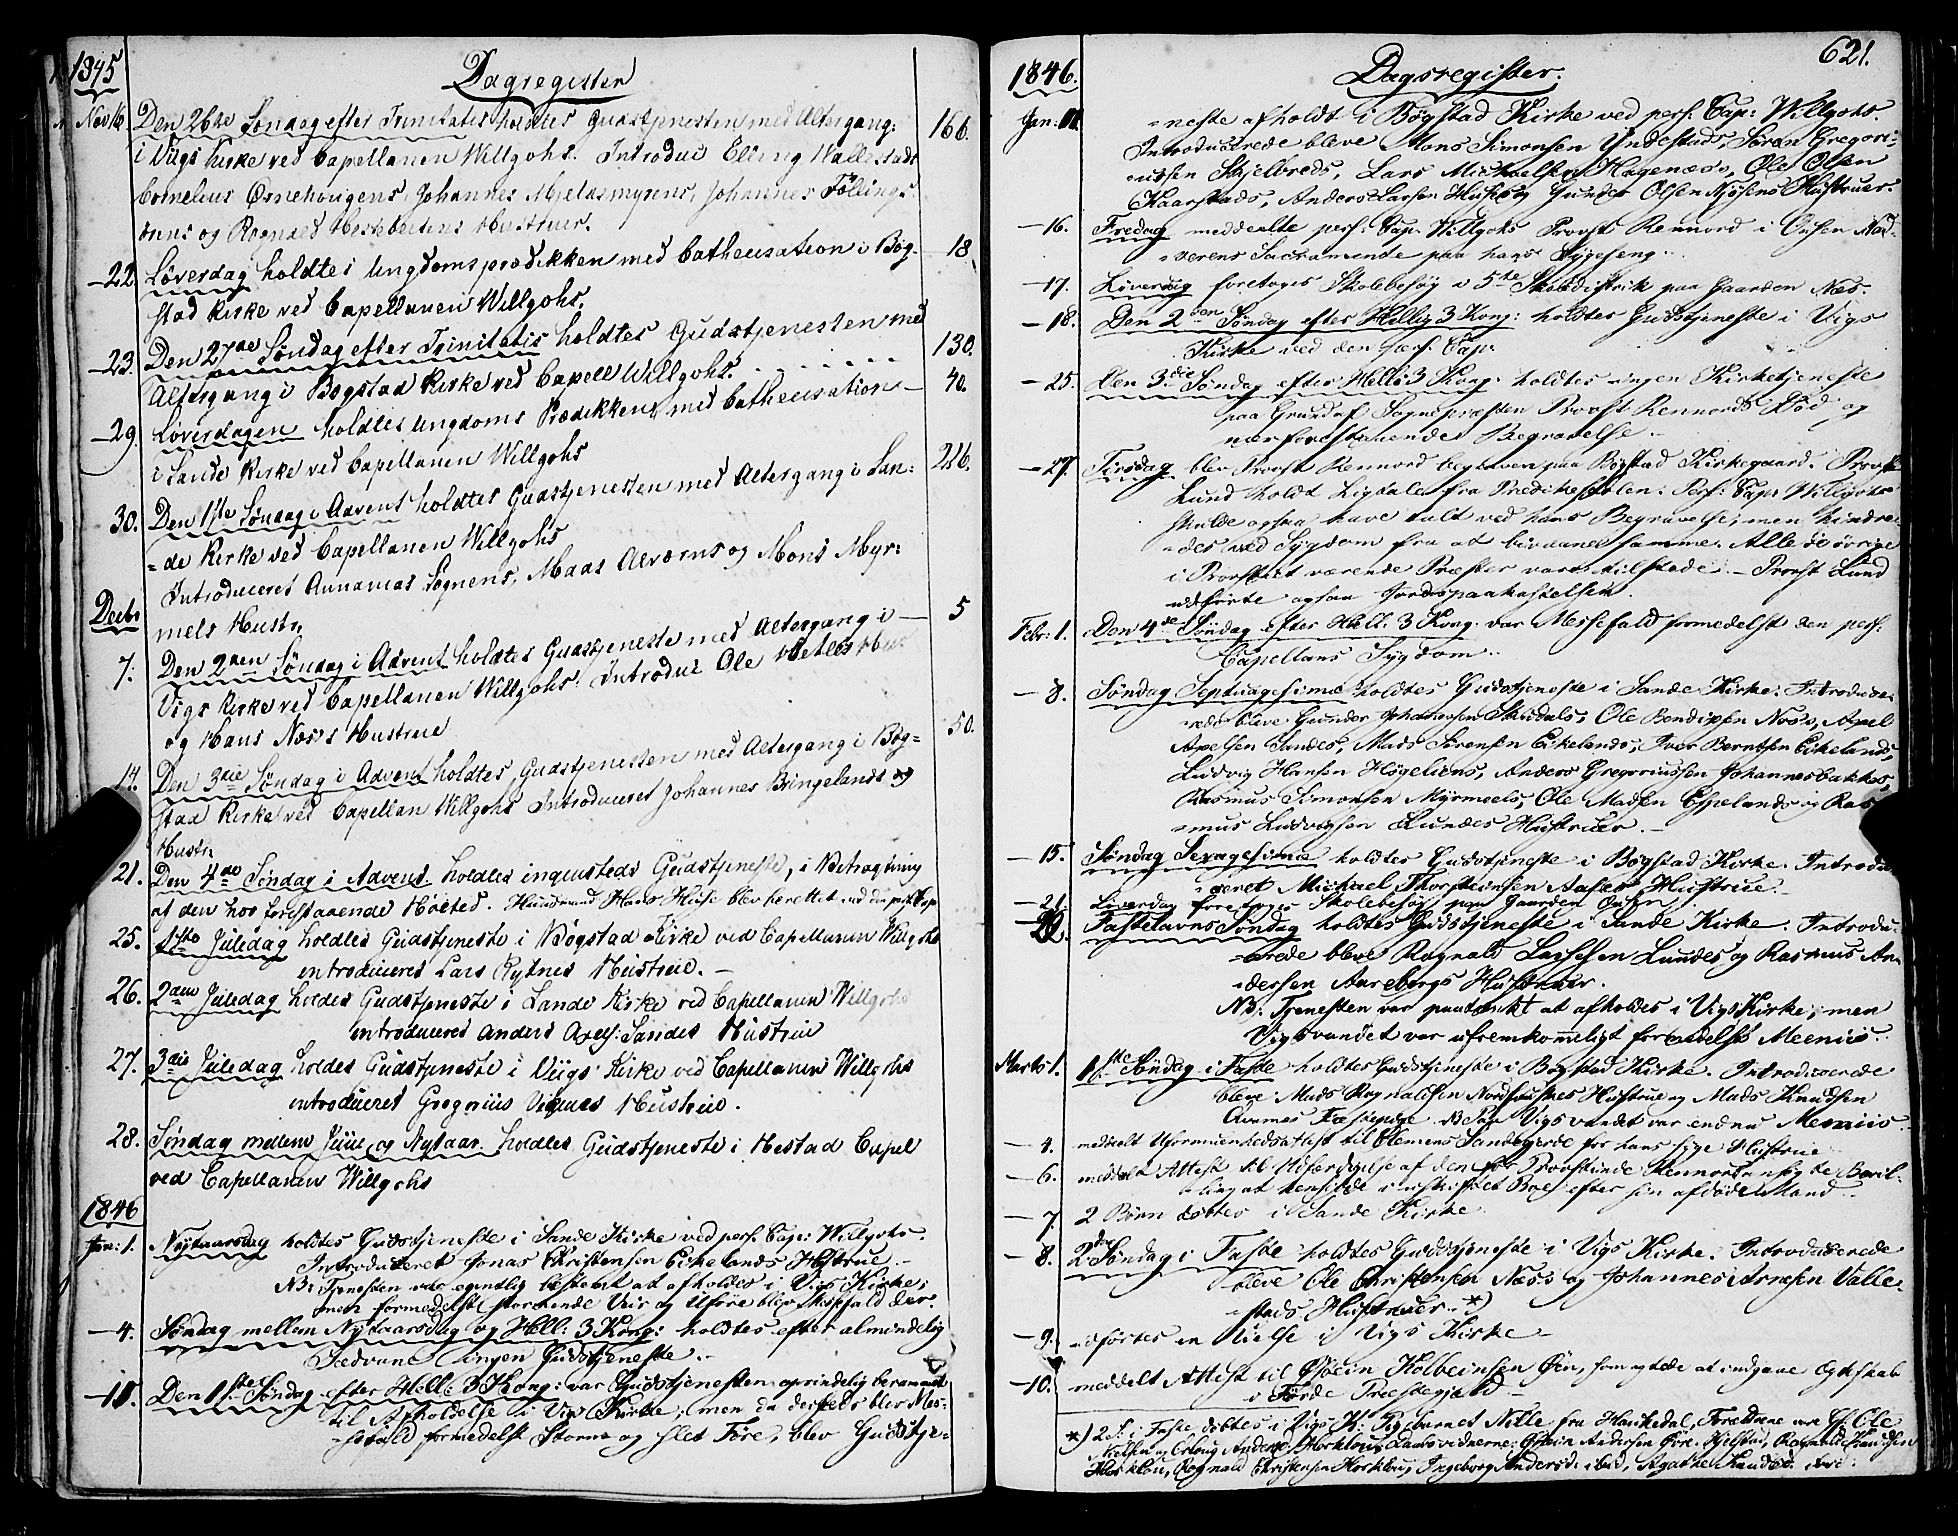 1845
Dagregister
Nov 16 Den 26de Søndag efter Trinitatis holdtes Gudstjenesten med Altergang: 166.
i Viigs Kirke ved Capellanen Willgohs. Introduc Elling Wallestads
Cornelius Ørnehougens, Johannes Mjeldsmyrens, Johannes Föllings-
og Rognald Hestebeitens Hustruer.
—22. Løverdag holdtes Ungdomsprædikken med Cathecisation i Bög- 18
stad Kirke ved Capellanen Willgohs.
—23. Den 27de Søndag efter Trinitatis holdtes Gudstjenesten med 130.
Altergang i Bogstad Kirke ved Capell Willgohs.
—29. Løverdagen holdtes Ungdoms Prædikken med Cathecisation — 40.
i Sande Kirke ved Capellanen Willgohs
30. Den 1ste Søndag i Advent holdtes Gudstjenesten med Altergang i San: 226.
=de Kirke ved Capellanen Willgohs
Introduceret Annanias Sognens, Maas Alværns og Mons Myr:
mels Hustr.
Decbr
7. Den 2den Søndag i Advent holdtes Gudstjeneste med Altergang i — 5
Vigs Kirke ved Capellanen Willgohs. Introduc Ole
og Hans Næss Hustrue
14. Den 3die Søndag i Advent holdtes Gudstjenesten med Altergang i Bög= 50.
stad Kirke ved Capellan Willgohs Introduceret Johannes Bringelands
Hustr.
21. Den 4de Søndag i Advent holdtes ingensteds Gudstjeneste, i Betragtning
af den hos forestaaende Höited. Huusmand Hans Huse blev berettet ved Cap
25. 1ste Juledag holdtes Gudstjeneste i Bögstad Kirke ved Capellanen Willgohs
introduceret Lars Rytnes Hustrue. —
26. 2den Juledag holdes Gudstjeneste i Sande Kirke ved Capellanen Willgohs
introduceret Anders Axels: Sandes Hustrue
27. 3die Juledag holdes Gudstjeneste i Viigs Kirke ved Capellanen Willgohs
introduceret Gregorius Hustrue.
28. Søndag mellem Juul og Nytaar holdtes Gudstjeneste i Hestad Capel
ved Capellanen Willgohs
1846
Jan: 1. Nytaarsdag holdtes Gudstjeneste i Sande Kirke ved pers. Cap: Willgohs.
Introduceret Jonas Christensen Eikelands Hustrue. —
NB: Tjenesten var egentlig bestemt at afholdes i Vigs Kirke;
men formedelst stormende Veir og Uföre blev Messefald der.
—4. Søndag mellem Nytaarsdag og Hell: 3 Kong: holdtes efter almindelig
Sædvane ingen Gudstjeneste. —
—11. Den 1ste Søndag efter Hell: 3 Kong: var Gudstjenesten oprindelig berammet
til Afholdelse i Vigs Kirke; men da dersteds blev Mes=
=sefald formedelst Storm og slet Före, blev Gudstje=
621.
1846.
Dagsregister.
Jan: 11. =neste afholdt i Bögstad Kirke ved pers. Cap: Willgohs.
Introducerede bleve Mons Simonsen Yndestads, Sören Gregori=
=ussen Skjelbreds, Lars Michaelsen Hagenæs, Ole Olsen
Kaarstads, Anders Larsen Huse og Gunder Olsen Njösens Hustruer.
—16. Fredag meddeelte pers. Cap: Willgohs Provst Rennord i Osen Nad=
=verens Sacramente paa hans Sygeseng. —
—17. Löverdag foretoges Skolebesög i 5te Skoledistrik paa Gaarden Næs.
—18. Den 2den Søndag efter Hellig 3 Kong: holdtes Gudstjeneste i Vigs
Kirke ved den pers. Cap:
—25. Den 3die Søndag efter Hell: 3 Kong: holdtes ingen Kirketjeneste
paa Grund af Sognepræsten Provst Rennords Död og
nærforestaaende Begravelse. —
—27. Tirsdag blev Provst Rennord begraven paa Bögstad Kirkegaard. Provst
Lund holdt Ligtale fra Prædikestolen. Pers: Cap: Willgohs
skulde ogsaa have talt ved hans Begravelse, men hindre=
=des ved Sygdom fra at bivaane samme. Alle de övrige
i Provstiet værende Præster vare tilstede. — Provst Lund
udförte ogsaa Jordspaakastelsen.
Febr: 1. Den 4de Søndag efter Hell: 3 Kong: var Messefald formedelst den pers:
Capellans Sygdom. —
—8. Søndag Septuagesima holdtes Gudstjeneste i Sande Kirke. Introduce=
=rede bleve Gunder Johannesen Skudals, Ole Bendixen Noss, Axel
Axelsen Sandes, Mads Sörensen Eikelands, Iver Berntsen Eikelands,
Ludvig Hansen Högeliens, Anders Gregoriussen Johannesbakkes,
Rasmus Simonsen Myrmeels, Ole Madsen Espelands og Ras=
=mus Ludvigsen Lundes Hustruer. —
—15. Søndag Sexagesima holdtes Gudstjeneste i Bögstad Kirke. Introdu=
=ceret Michael Thorsteinsen Aases Hustrue. —
—21. Löverdag foretoges Skolebesög paa Gaarden
22. Fastelavns Søndag holdtes Gudstjeneste i Sande Kirke. Introdu=
=cerede bleve Rognald Lassesen Lundes og Rasmus An=
=dersen Aarebergs Hustruer.
NB: Tjenesten var paatænkt at afholdes i Vigs Kirke, men
Vigsvandet var ufremkommeligt formedelst Meeniis. —
Marts 1. 1ste Søndag i Faste holdtes Gudstjeneste i Bögstad Kirke. Introducerede
bleve Mads Rognaldsen Nordhuustes Hustrue og Mads Knudsen
Kvames Fæstepige. NB Paa Vigsvandet var endnu Meeniis.
—4. meddeelt Uformuenhedsattest til Clemens Sandegjerde for hans syge Hustrue
—6. meddeelt Attest til Udfærdigelse af den for Provstinde Rennord ansögte Bevil=
=ling at hensidde i uskiftet Boe efter sin afdöde Mand.
—7. 2 Börn döbtes i Sande Kirke
—8. 2den Søndag i Faste holdtes Gudstjeneste i Vigs Kirke. Introducerede
bleve Ole Christensen Næss og Johannes Arnesen Valle=
=stads Hustruer. *)
—9. udförtes en Vielse i Vigs Kirke —
—10. meddelt Attest til Öistein Kolbeinsen Öen, som agtede at indgaae Egteskab
i Förde Præstegjeld —
*) 2 S. i Faste döbtes i Vigs K. Pigebarnet Nille fra Haukedal, Forældrene ere Gf. Ole
Nielsen og Andersd: Horklou. Daabsvidnerne: Östein Andersen Ören Hjelstad, Rognald Knudsen
Horklou, Rognald Christensen Horklou, Ingeborg Andersd. ibid, Agathe Knudsd. ibid.